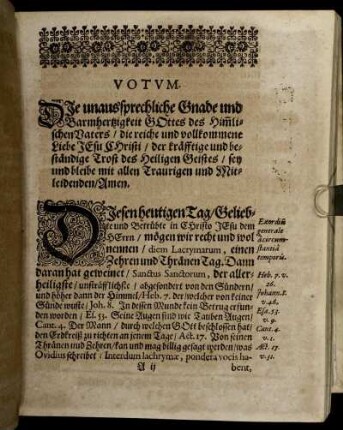 VOTVM.
DIe unaussprechliche Gnade und
Barmhertzigkeit GOttes des Him̃li-
schen Vaters / die reiche und vollkommene
Liebe JEsu CHristi / der kräfftige und be-
ständige Trost des Heiligen Geistes / sey
und bleibe mit allen Traurigen und Mit-
leidenden / Amen.
DIesen heutigen Tag / Gelieb-
te und Betrübte in CHristo JEsu dem
HErrn / mögen wir recht und wol
nennen / diem Lacrymarum, einen
Zehren und Thränen Tag. Dann
daran hat geweinet / Sanctus Sanctorum, der aller-
heiligste / unsträfflichste / abgesondert von den Sündern /
und höher dann der Himmel / Heb. 7. der / welcher von keiner
Sünde wuste / Joh. 8. In dessen Munde kein Betrug erfun-
den worden / Es. 53. Seine Augen sind wie Tauben Augen /
Cant. 4. Der Mann / durch welchen GOtt beschlossen hat /
den Erdkreiß zu richten an jenem Tage / Act. 17. Von seinen
Thränen und Zehren / kan und mag billig gesagt werden / was
Ovidius schreibet / Interdum lachrymæ, pondera vocis ha-
A ij bent,
Exordiũ
generale
à circum-
stantiâ
temporis.
Heb. 7. v.
26.
Johann. 8.
v. 46.
Esa. 53.
v. 9.
Cant. 4.
v. 1.
Act. 17.
v. 31.